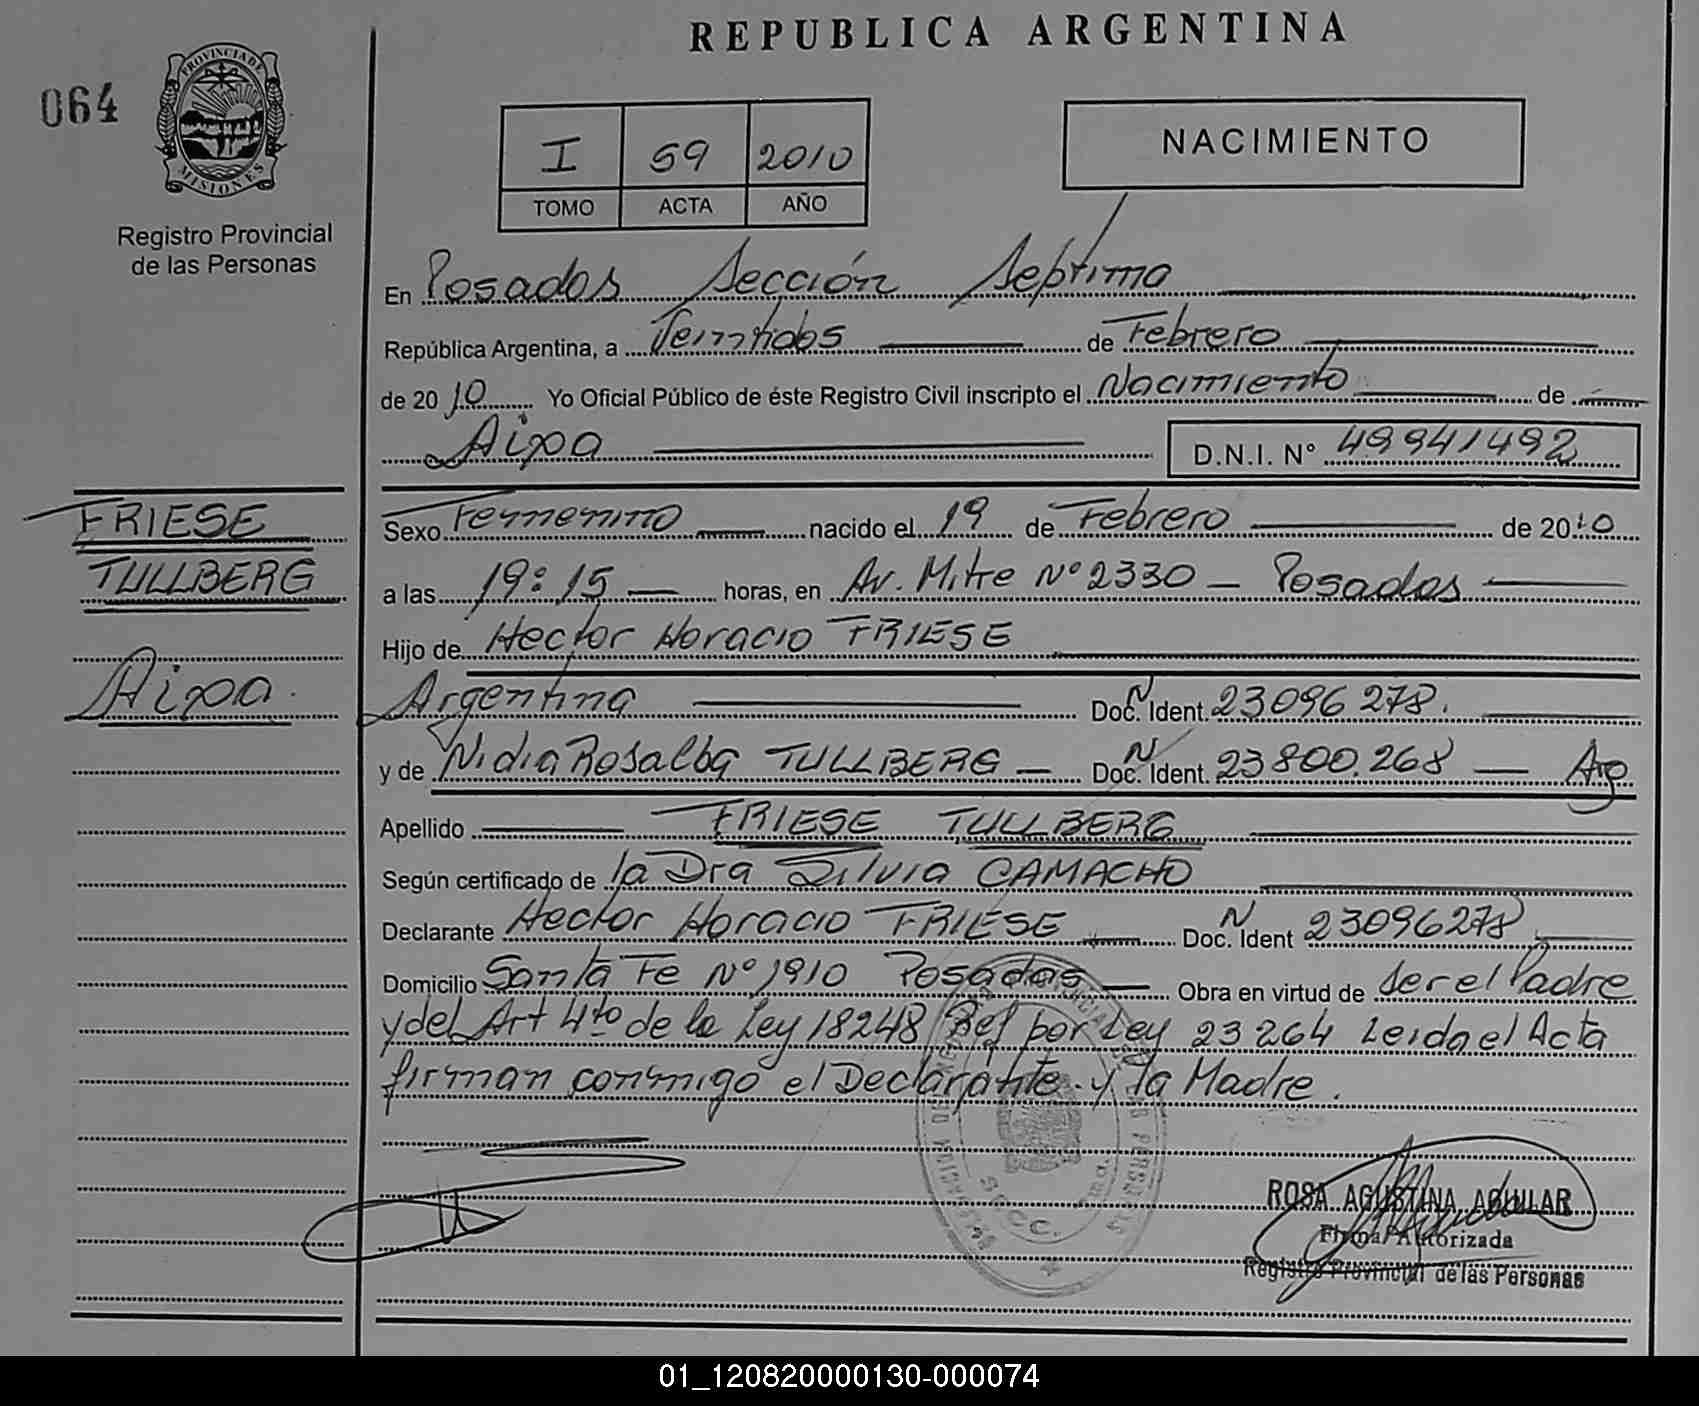 REPUBLICA ARGENTINA
064
PROVINCIA DE
MISIONES
Registro Provincial
de las Personas
I 59 2010
TOMO ACTA AÑO
NACIMIENTO
En Posadas Sección Septima
República Argentina, a Veintidos de Febrero
de 2010 Yo Oficial Público de éste Registro Civil inscripto el Nacimiento de
Aixa D.N.I. N° 49941492
FRIESE
TULLBERG
Aixa.
Sexo Femenino nacido el 19 de Febrero de 2010
a las 19:15 horas, en Av. Mitre N° 2330 - Posadas
Hijo de Hector Horacio FRIESE
Argentina Doc. Ident. N 23096278.
y de Nidia Rosalba TULLBERG Doc. Ident. N 23800.268 Arg
Apellido FRIESE TULLBERG
Según certificado de la Dra Silvia CAMACHO
Declarante Hector Horacio FRIESE Doc. Ident N 23096278
Domicilio Santa Fe N° 1910 Posadas Obra en virtud de ser el Padre
y del Art 4to de la Ley 18248 Ref por Ley 23264 Leida el Acta
firman conmigo el Declarante y la Madre.
ROSA AGUSTINA AGUILAR
Firma Autorizada
Registro Provincial de las Personas
01_120820000130-000074